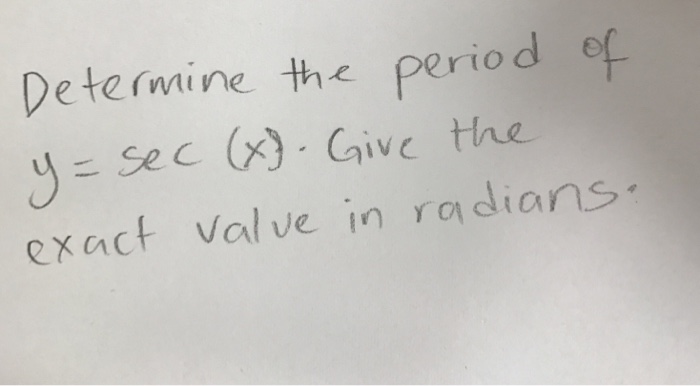 Determine the period of
y = sec (x). Give the
exact value in radians.